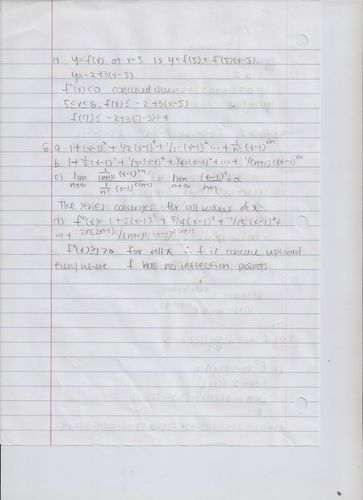 d. y=f(x) at x=5 is y=f(5)+f'(5)(x-5)
y=-2+3(x-5)
f''(x)<0 concave down
5≤x≤8, f(x)≤-2+3(x-5)
f(7)≤-2+3(7-5)=4
6 a. 1+(x-1)²+1/2(x-1)⁴+1/3!(x-1)⁶...+1/n!(x-1)²ⁿ
b. 1+1/2(x-1)²+1/3!(x-1)⁴+1/4!(x-1)⁶+...+1/(n+1)!(x-1)²ⁿ
c) lim n→∞ = lim n→∞ (x-1)²/n+1
The series converges for all values of x.
d) f''(x)=1+
...+ 2n(2n-1)/(n+1)!
f''(x)≥1>0 for all x ∴ f is concave upward
everywhere f has no inflection points.